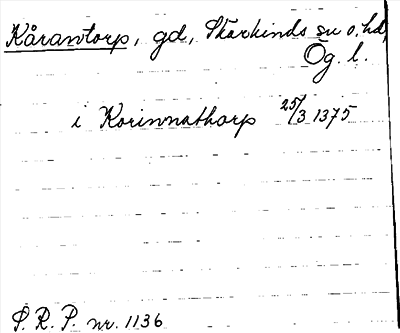 Kårantorp, gd, Skärkinds sn o. hd,
Ög. l.
i Korinnathorp 25/3 1375
S. R. P. nr. 1136